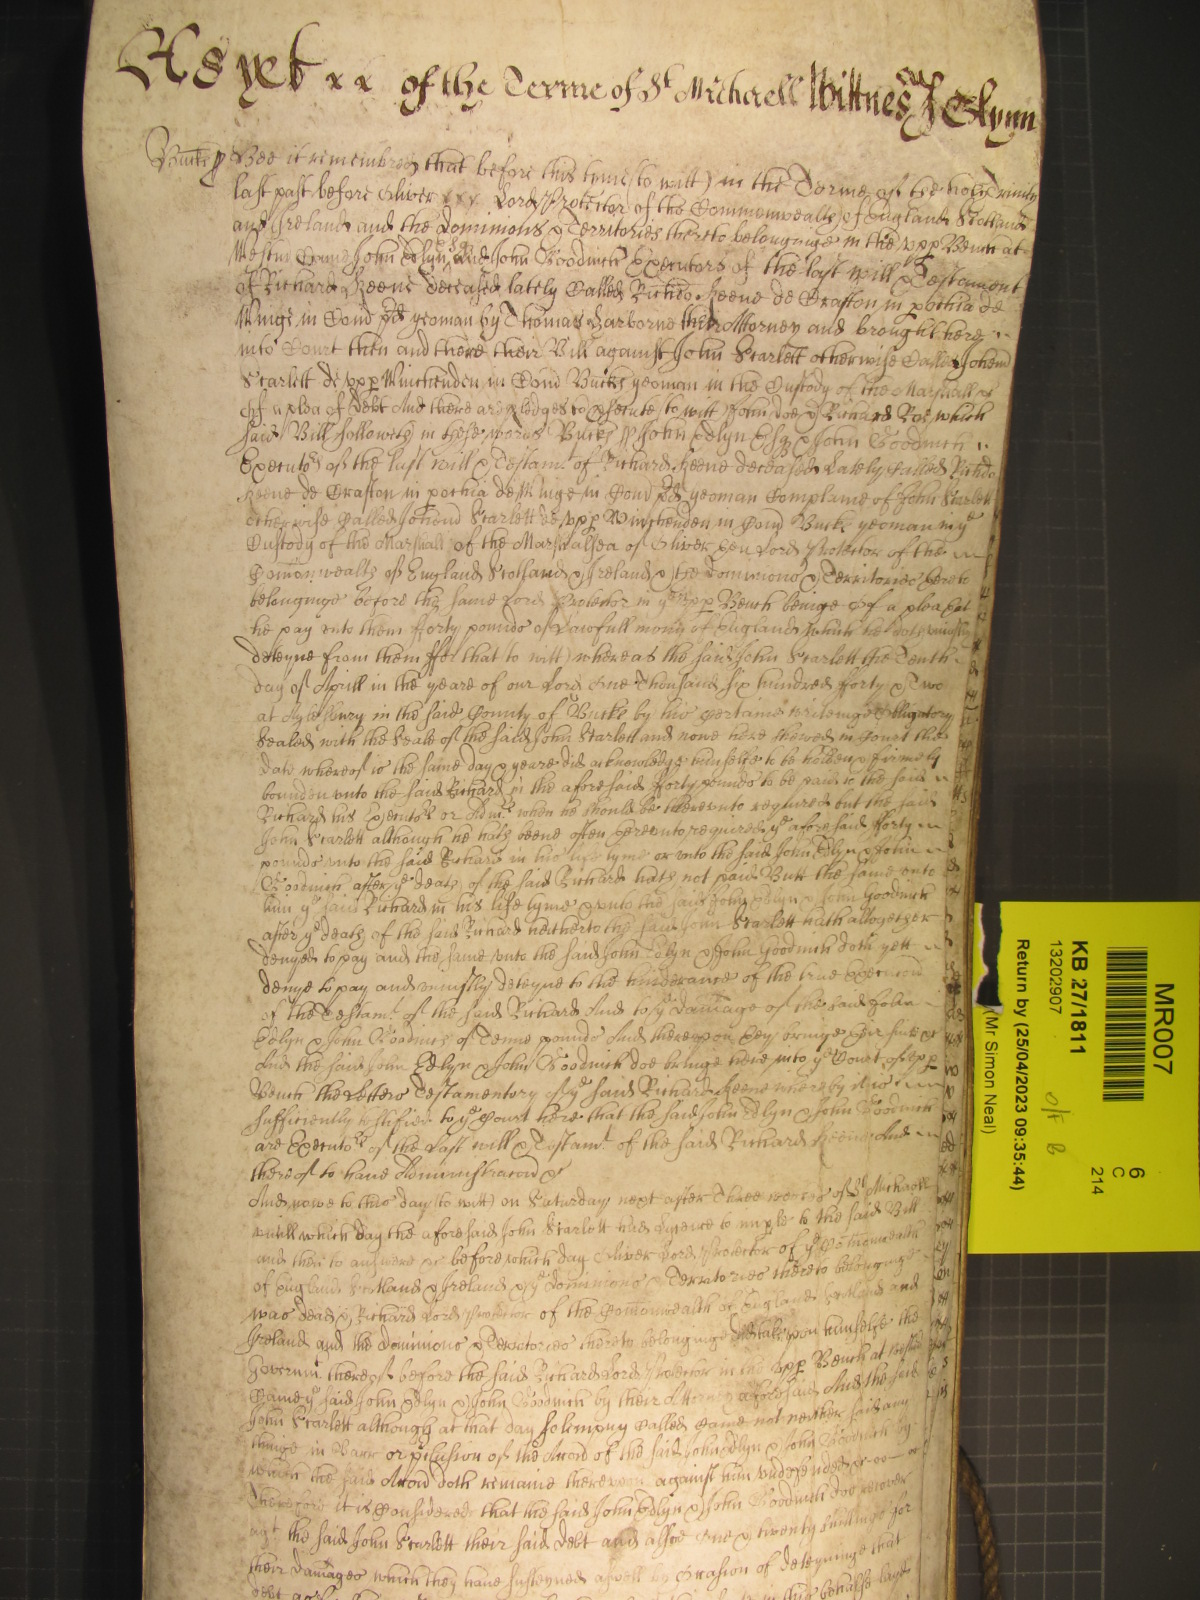 As yet xx of the Terme of St Michaell Wittnes J Glynn
Bucks ss Bee it remembred that before this time (to witt) in the Terme of the holy Trinity
last past before Oliver xxx Lord Protector of the Commonwealth of England Scotland
and Ireland and the Dominions & Territories thereto belonginge in the upp Bench at
Westm Came John Edlyn Esq and John Goodwich Executors of the last will & Testament
of Richard Keene deceased lately Called Richo Keene de Crafton in pochia de
Winge in Com pd yeoman by Thomas Harborne their Attorney and brought here
into Court then and there their Bill against John Scarlett otherwise Called Johem
Scarlett de upp Winchenden in Com Bucks yeoman in the Custody of the Marshall &c
Of a plea of Debt And there are pledges to psecute to witt John Doe & Richard Roe which
said Bill followeth in these words Bucks ss John Edlyn Esq & John Goodwich
Executors of the last will & Testamt of Richard Keene deceased Lately Called Richo
Keene de Crafton in pochia de Winge in Com pd yeoman Complaine of John Scarlett
otherwise Called Johem Scarlett de upp Winchenden in Com Bucks yeoman in ye
Custody of the Marshall of the Marshalsea of Oliver then Lord Protector of the
Comonwealth of England Scotland & Ireland & the Dominions & Territories hereto
belonginge before the same Lord Protector in ye upp Bench beinge Of a plea that
he pay unto them forty pounds of Lawfull mony of England which he doth unjustly
deteyne from them ffor that (to witt) whereas the said John Scarlett the Tenth
day of Aprill in the yeare of our Lord One Thousand six hundred forty & Two
at Aylesbury in the said County of Bucks by his Certaine writeinge Obligatory
Sealed with the Seale of the said John Scarlett and nowe here shewed in Court the
date whereof is the same day & yeare did acknowledge himselfe to be holden & firmely
bounden unto the said Richard in the aforesaid Forty pounds to be paid to the said
Richard his Executors or Admrs when he should be thereunto required but the said
John Scarlett although he hath beene often thereunto required ye aforesaid forty
pounds unto the said Richard in his life tyme or unto the said John Edlyn & John
Goodwich after ye death of the said Richard hath not paid Butt the same unto
him ye said Richard in his life tyme & unto the said John Edlyn & John Goodwich
after ye death of the said Richard hetherto the said John Scarlett hath altogether
denyed to pay and the same unto the said John Edlyn & John Goodwich doth yett
denye to pay and uniustly deteyne to the hinderance of the true Execucion
of the Testamt of the said Richard And to ye damage of the said John
Edlyn & John Goodwich of Tenne pounds And thereupon they bringe their suite &c
And the said John Edlyn & John Goodwich doe bringe here into ye Court of upp
Bench the Letters Testamentory of ye said Richard Keene whereby it is
sufficiently testified to ye Court here that the said John Edlyn & John Goodwich
are Executors of the Last will & Testamt of the said Richard Keene And
thereof to have Administracion &c
And nowe to this day (to witt) on Saturday next after Three weeks of St Michaell
untill which day the aforesaid John Scarlett had Lycence to imple to the said Bill
and then to answere &c before which day Oliver Lord Protector of ye Comonwealth
of England Scotland & Ireland & ye Dominions & Territories thereto belonginge
was dead & Richard Lord Protector of the Comonwealth of England Scotland and
Ireland and the Dominions & Territories thereto belonginge did take upon himselfe the
Governmt thereof before the said Richard Lord Protector in the upp Bench at Westm
Came ye said John Edlyn & John Goodwich by their Attorney aforesaid And the said
John Scarlett although at that day solempny Called Came not neither said any
thinge in Barr or pclusion of the Accion of the said John Edlyn & John Goodwich by
which the said Accion doth remaine thereupon against him undefended &c
Therefore it is Considered that the said John Edlyn & John Goodwich doe recover
agt the said John Scarlett their said Debt and alsoe One & twenty shillings for
their damages which they have susteyned aswell by Occasion of deteyninge that
debt
MR007
6
C
214
KB 27/1811
13202907
o/f B
Return by (25/04/2023 09:35:44)
(Mr Simon Neal)